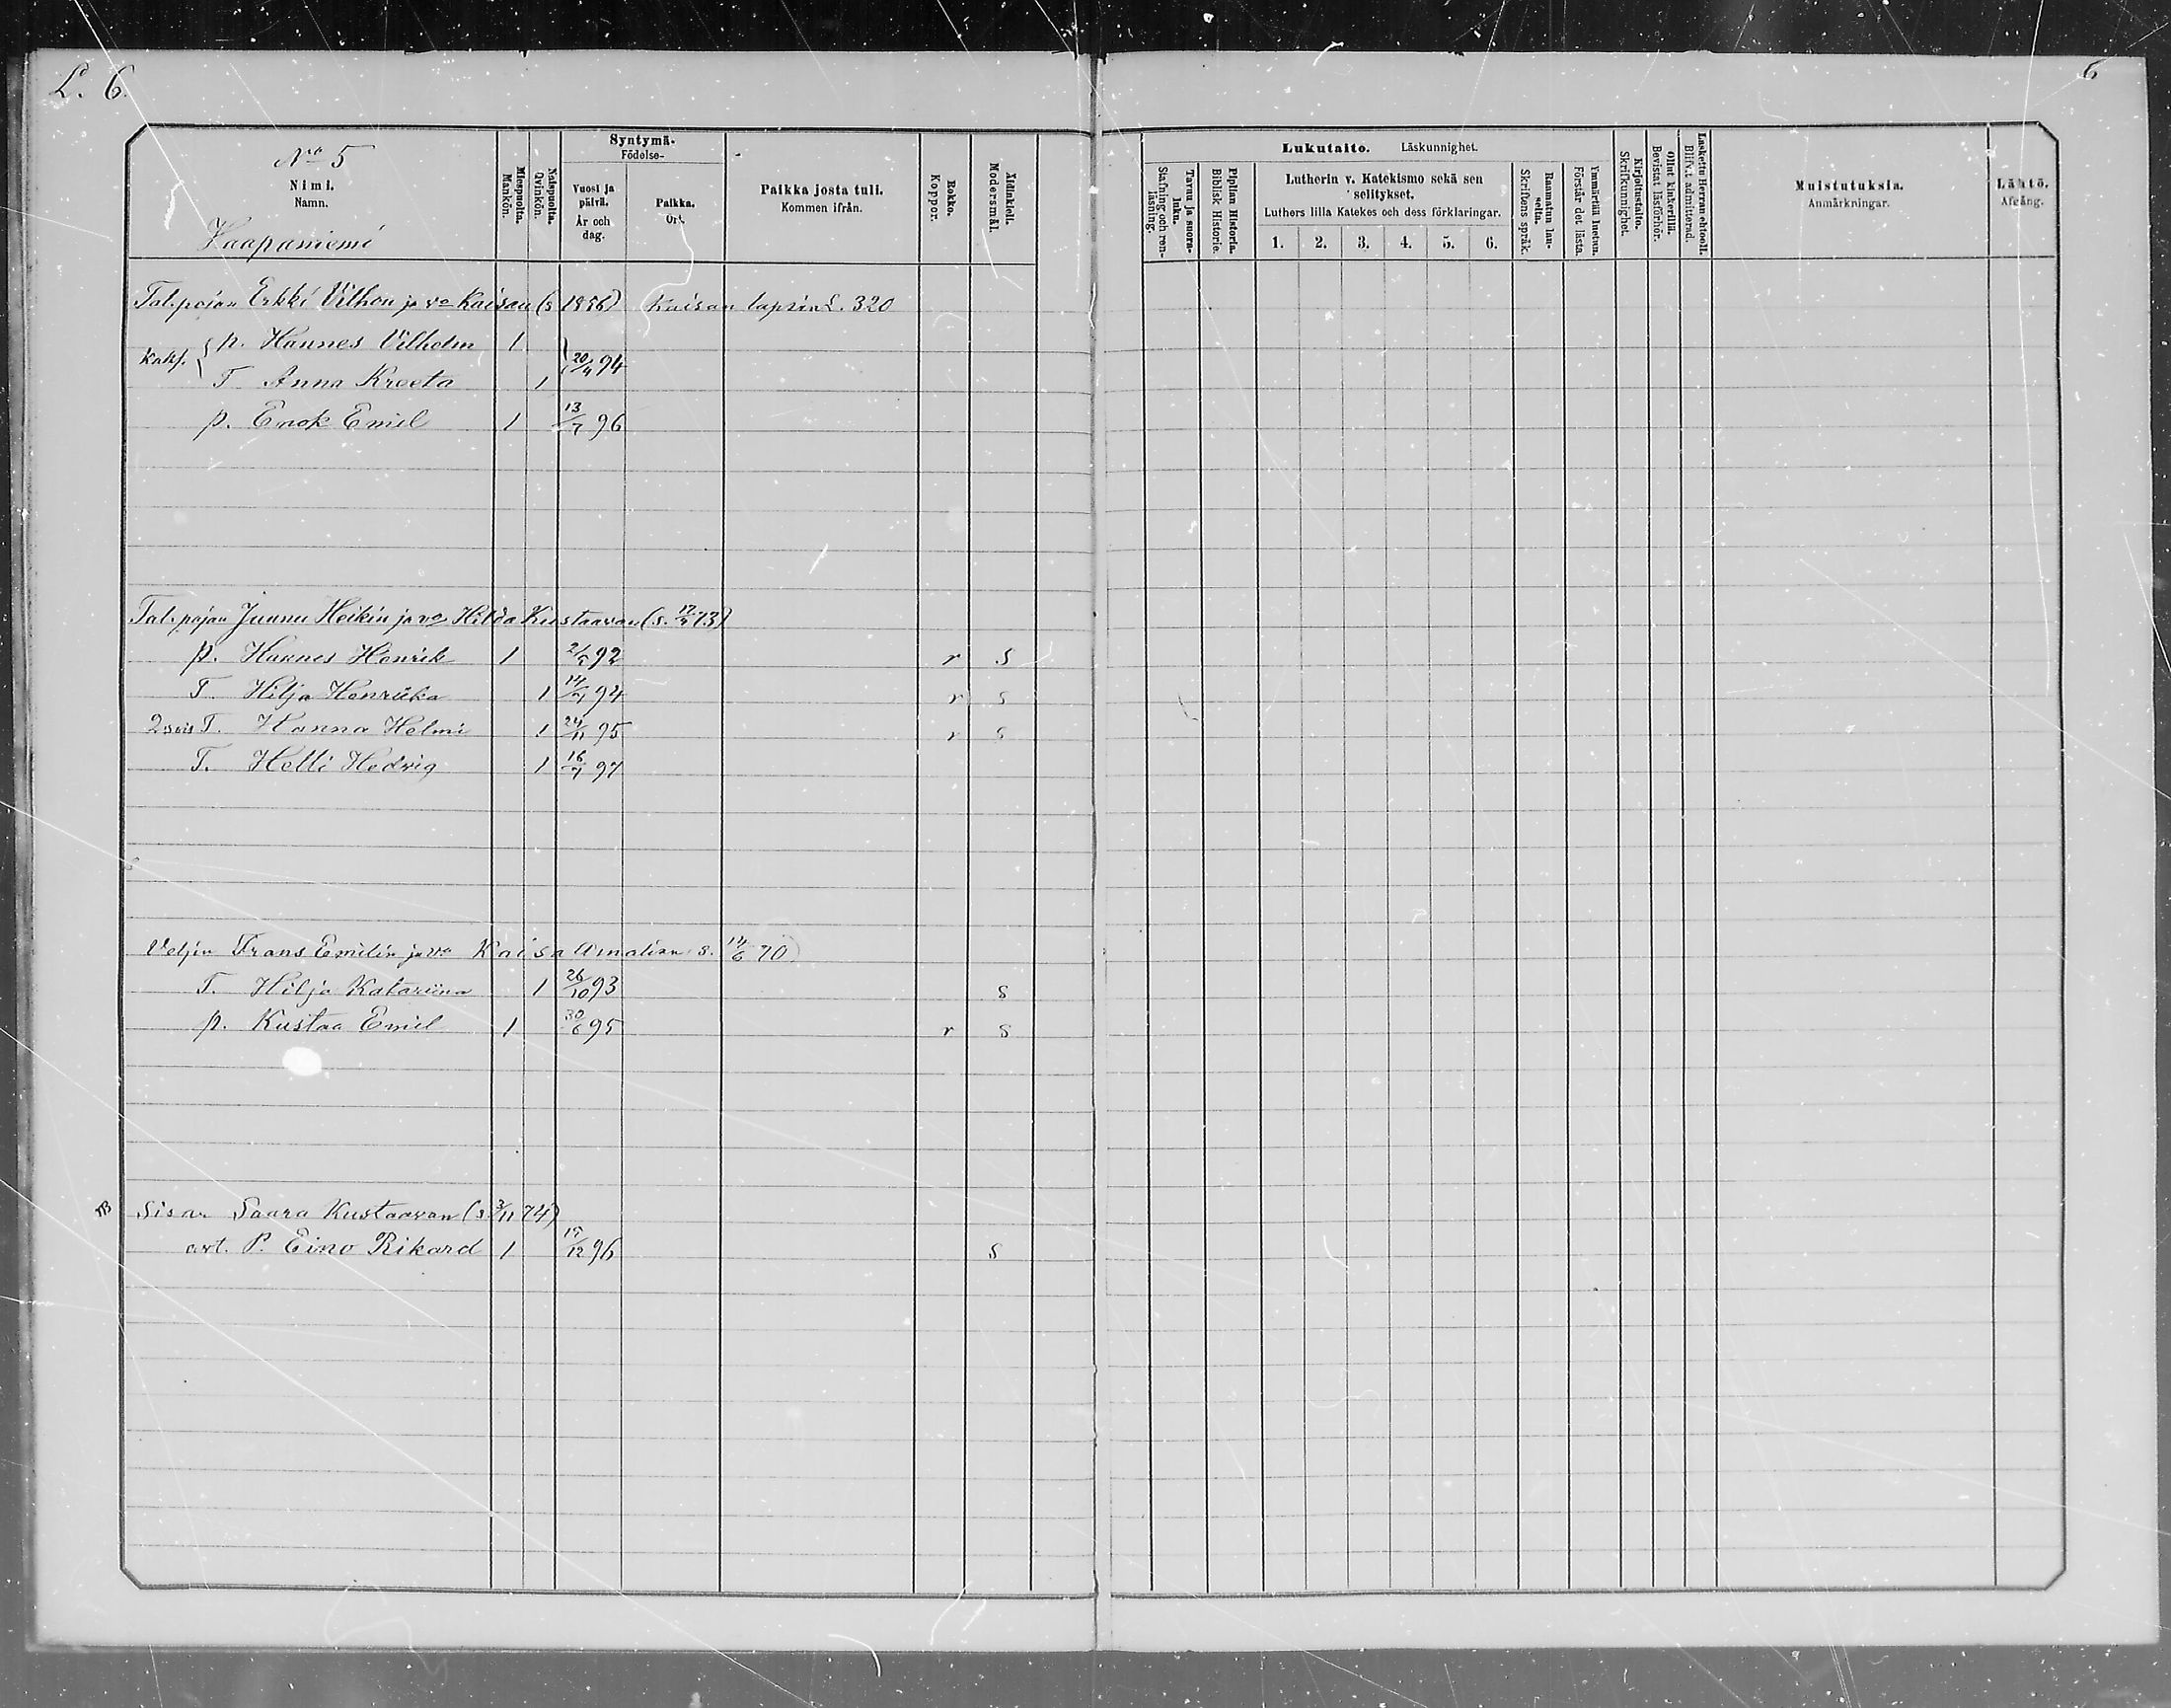 L. 6.
6
Nro 5
Nimi.
Namn.
Haapaniemi
Miespuolta.
Mankön.
Naispuolta.
Qvinkön.
Syntymä-
Födelse-
Vuosi ja päivä.
År och dag.
Paikka.
Ort.
Paikka josta tuli.
Kommen ifrån.
Rokko.
Koppor.
Äidinkieli.
Modersmål.
Tavuu ja suora-luku.
Stafning och ren-läsning.
Piplian Historia.
Biblisk Historie.
Lukutaito. Läskunnighet.
Lutherin v. Katekismo sekä sen selitykset.
Luthers lilla Katekes och dess förklaringar.
1. 2. 3. 4. 5. 6.
Raamatun lau-seita.
Skriftens språk.
Ymmärtää luetun.
Förstår det lästa.
Kirjoitustaito.
Skrifkunnighet.
Ollut kinkerillä.
Bevistat läsförhör.
Laskettu Herran ehtooll.
Blifvit admitterad.
Muistutuksia.
Anmärkningar.
Lähtö.
Afgång.
Tal. pojan Erkki Vilhon ja vo Kaisan (s 1856) Kaisan lapsia L. 320
kaks. p. Hannes Vilhelm 1
20/4 94
T Anna Kreeta 1
p. Enok Emil 1 13/7 96
Tal. pojan Junnu Heikin ja vo Hilda Kustaavan (s. 73)
p. Hannes Henrik 1 2/5 92 r s
T. Hilja Henriika 1 94 r s
T. Hanna Helmi 1 24/11 95 r s
T. Helli Hedvig 1 16/7 97
Veljen Frans Emilin ja vo Kaisa Amalian s. 70)
T. Hilja Katariina 1 26/10 93 s
p. Kustaa Emil 1 30/6 95 r s
Sisar Saara Kustaavan (s. 3/11 74)
avt. P. Eino Rikard 1 96 s